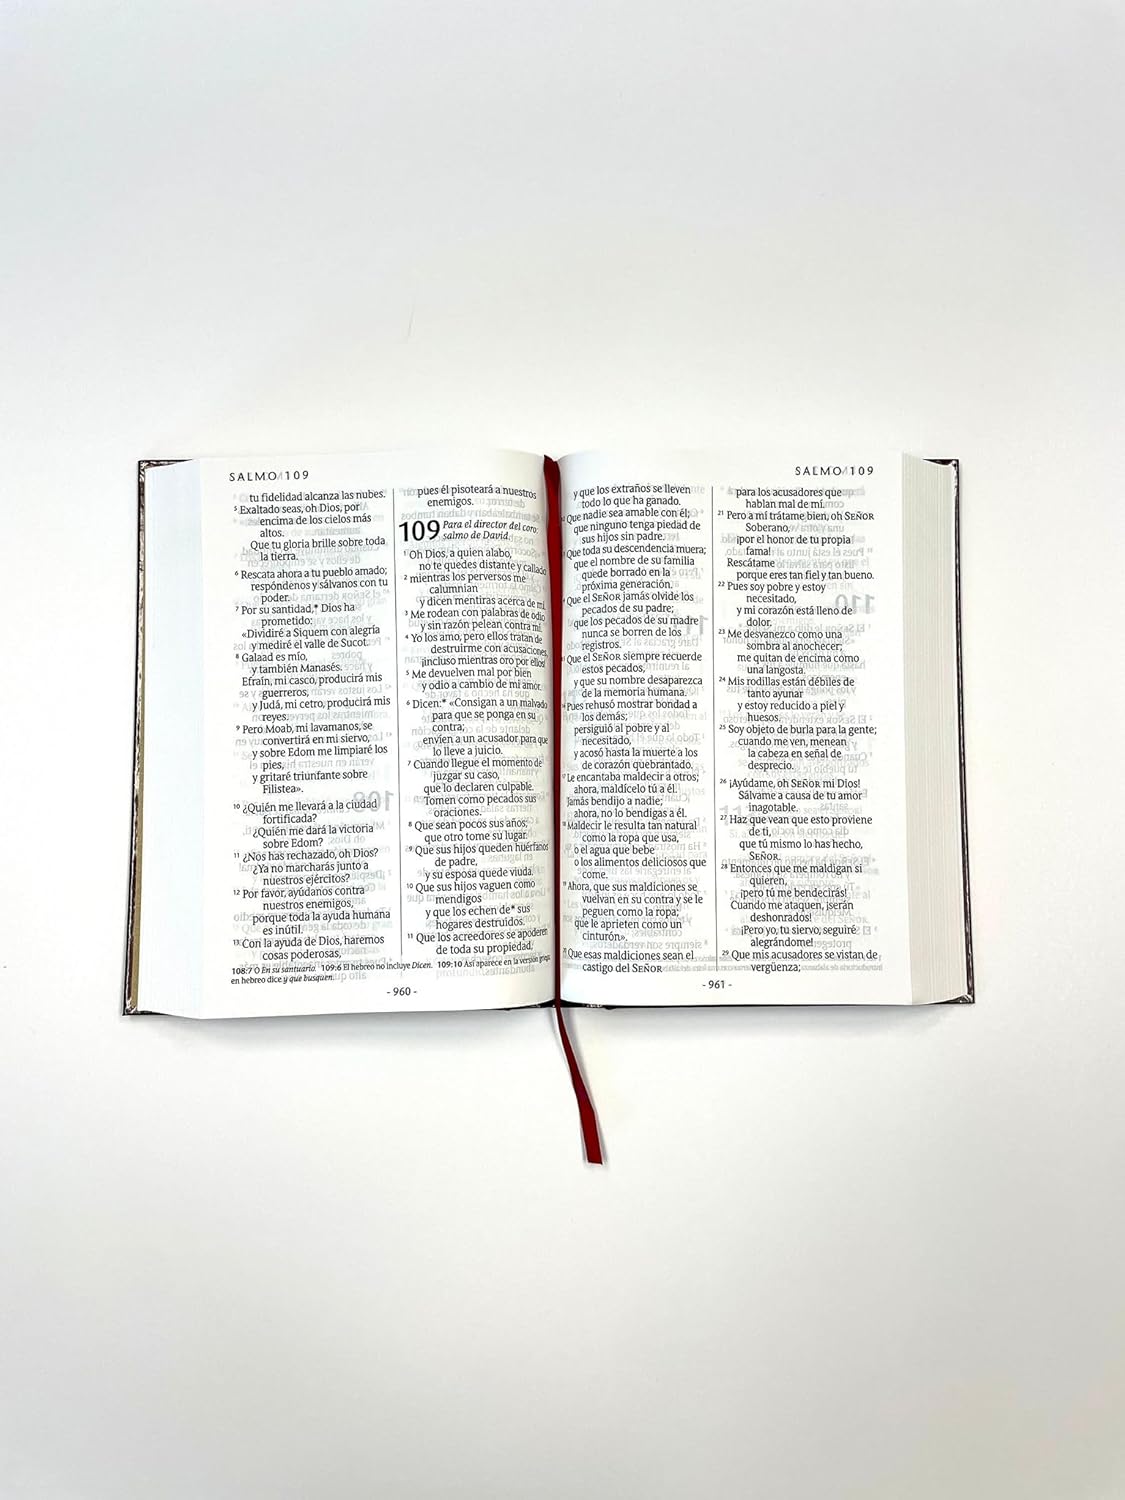 SALMO 109
tu fidelidad alcanza las nubes.
5 Exaltado seas, oh Dios, por
encima de los cielos más
altos.
Que tu gloria brille sobre toda
la tierra.
6 Rescata ahora a tu pueblo amado;
respóndenos y sálvanos con tu
poder.
7 Por su santidad,* Dios ha
prometido:
«Dividiré a Siquem con alegría
y mediré el valle de Sucot.
8 Galaad es mío,
y también Manasés.
Efraín, mi casco, producirá mis
guerreros,
y Judá, mi cetro, producirá mis
reyes.
9 Pero Moab, mi lavamanos, se
convertirá en mi siervo,
y sobre Edom me limpiaré los
pies,
y gritaré triunfante sobre
Filistea».
10 ¿Quién me llevará a la ciudad
fortificada?
¿Quién me dará la victoria
sobre Edom?
11 ¿Nos has rechazado, oh Dios?
¿Ya no marcharás junto a
nuestros ejércitos?
12 Por favor, ayúdanos contra
nuestros enemigos,
porque toda la ayuda humana
es inútil.
13 Con la ayuda de Dios, haremos
cosas poderosas,
pues él pisoteará a nuestros
enemigos.
109 Para el director del coro:
salmo de David.
1 Oh Dios, a quien alabo,
no te quedes distante y callado
2 mientras los perversos me
calumnian
y dicen mentiras acerca de mí.
3 Me rodean con palabras de odio
y sin razón pelean contra mí.
4 Yo los amo, pero ellos tratan de
destruirme con acusaciones,
¡incluso mientras oro por ellos!
5 Me devuelven mal por bien
y odio a cambio de mi amor.
6 Dicen:* «Consigan a un malvado
para que se ponga en su
contra;
envíen a un acusador para que
lo lleve a juicio.
7 Cuando llegue el momento de
juzgar su caso,
que lo declaren culpable.
Tomen como pecados sus
oraciones.
8 Que sean pocos sus años;
que otro tome su lugar.
9 Que sus hijos queden huérfanos
de padre,
y su esposa quede viuda.
10 Que sus hijos vaguen como
mendigos
y que los echen de* sus
hogares destruidos.
11 Que los acreedores se apoderen
de toda su propiedad,
108:7 O En su santuario. 109:6 El hebreo no incluye Dicen. 109:10 Así aparece en la versión griega
en hebreo dice y que busquen.
- 960 -
SALMO 109
y que los extraños se lleven
todo lo que ha ganado.
Que nadie sea amable con él;
que ninguno tenga piedad de
sus hijos sin padre.
Que toda su descendencia muera;
que el nombre de su familia
quede borrado en la
próxima generación.
Que el SEÑOR jamás olvide los
pecados de su padre;
que los pecados de su madre
nunca se borren de los
registros.
Que el SEÑOR siempre recuerde
estos pecados,
y que su nombre desaparezca
de la memoria humana.
Pues rehusó mostrar bondad a
los demás;
persiguió al pobre y al
necesitado,
y acosó hasta la muerte a los
de corazón quebrantado.
Le encantaba maldecir a otros;
ahora, maldícelo tú a él.
Jamás bendijo a nadie;
ahora, no lo bendigas a él.
Maldecir le resulta tan natural
como la ropa que usa,
o el agua que bebe
o los alimentos deliciosos que
come.
Ahora, que sus maldiciones se
vuelvan en su contra y se le
peguen como la ropa;
que le aprieten como un
cinturón».
Que esas maldiciones sean el
castigo del SEÑOR
para los acusadores que
hablan mal de mí.
21 Pero a mí trátame bien, oh SEÑOR
Soberano,
¡por el honor de tu propia
fama!
Rescátame
porque eres tan fiel y tan bueno.
22 Pues soy pobre y estoy
necesitado,
y mi corazón está lleno de
dolor.
23 Me desvanezco como una
sombra al anochecer;
me quitan de encima como
una langosta.
24 Mis rodillas están débiles de
tanto ayunar
y estoy reducido a piel y
huesos.
25 Soy objeto de burla para la gente;
cuando me ven, menean
la cabeza en señal de
desprecio.
26 ¡Ayúdame, oh SEÑOR mi Dios!
Sálvame a causa de tu amor
inagotable.
27 Haz que vean que esto proviene
de ti,
que tú mismo lo has hecho,
SEÑOR.
28 Entonces que me maldigan si
quieren,
¡pero tú me bendecirás!
Cuando me ataquen, ¡serán
deshonrados!
¡Pero yo, tu siervo, seguiré
alegrándome!
29 Que mis acusadores se vistan de
vergüenza;
- 961 -